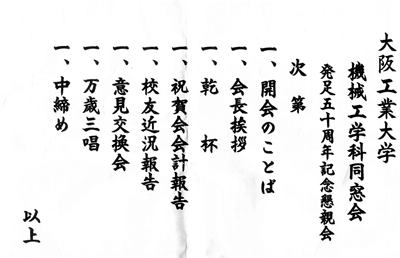 大阪工業大学
機械工学科同窓会
発足五十周年記念懇親会
次第
一、開会のことば
一、会長挨拶
一、乾　杯
一、祝賀会会計報告
一、校友近況報告
一、意見交換会
一、万歳三唱
一、中締め
以上